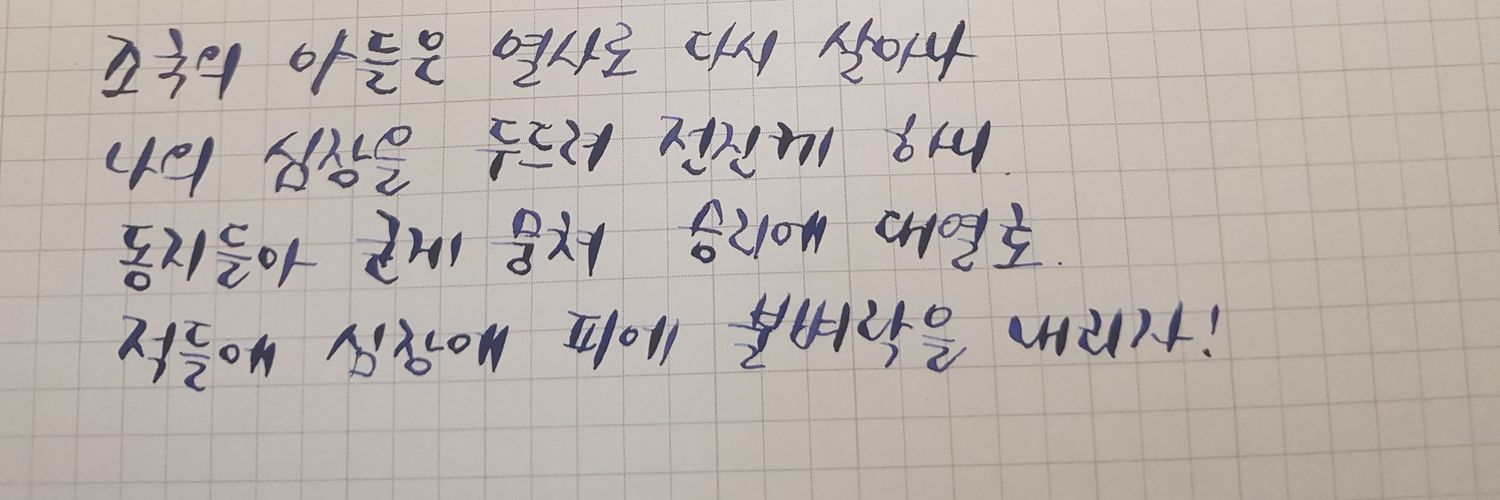 적들에 심장에 피에 불벼락을
동지들아 굳게 뭉쳐 승리에 대열로.
나의 심장을
조국의 아들은 열사로 다시 살아나